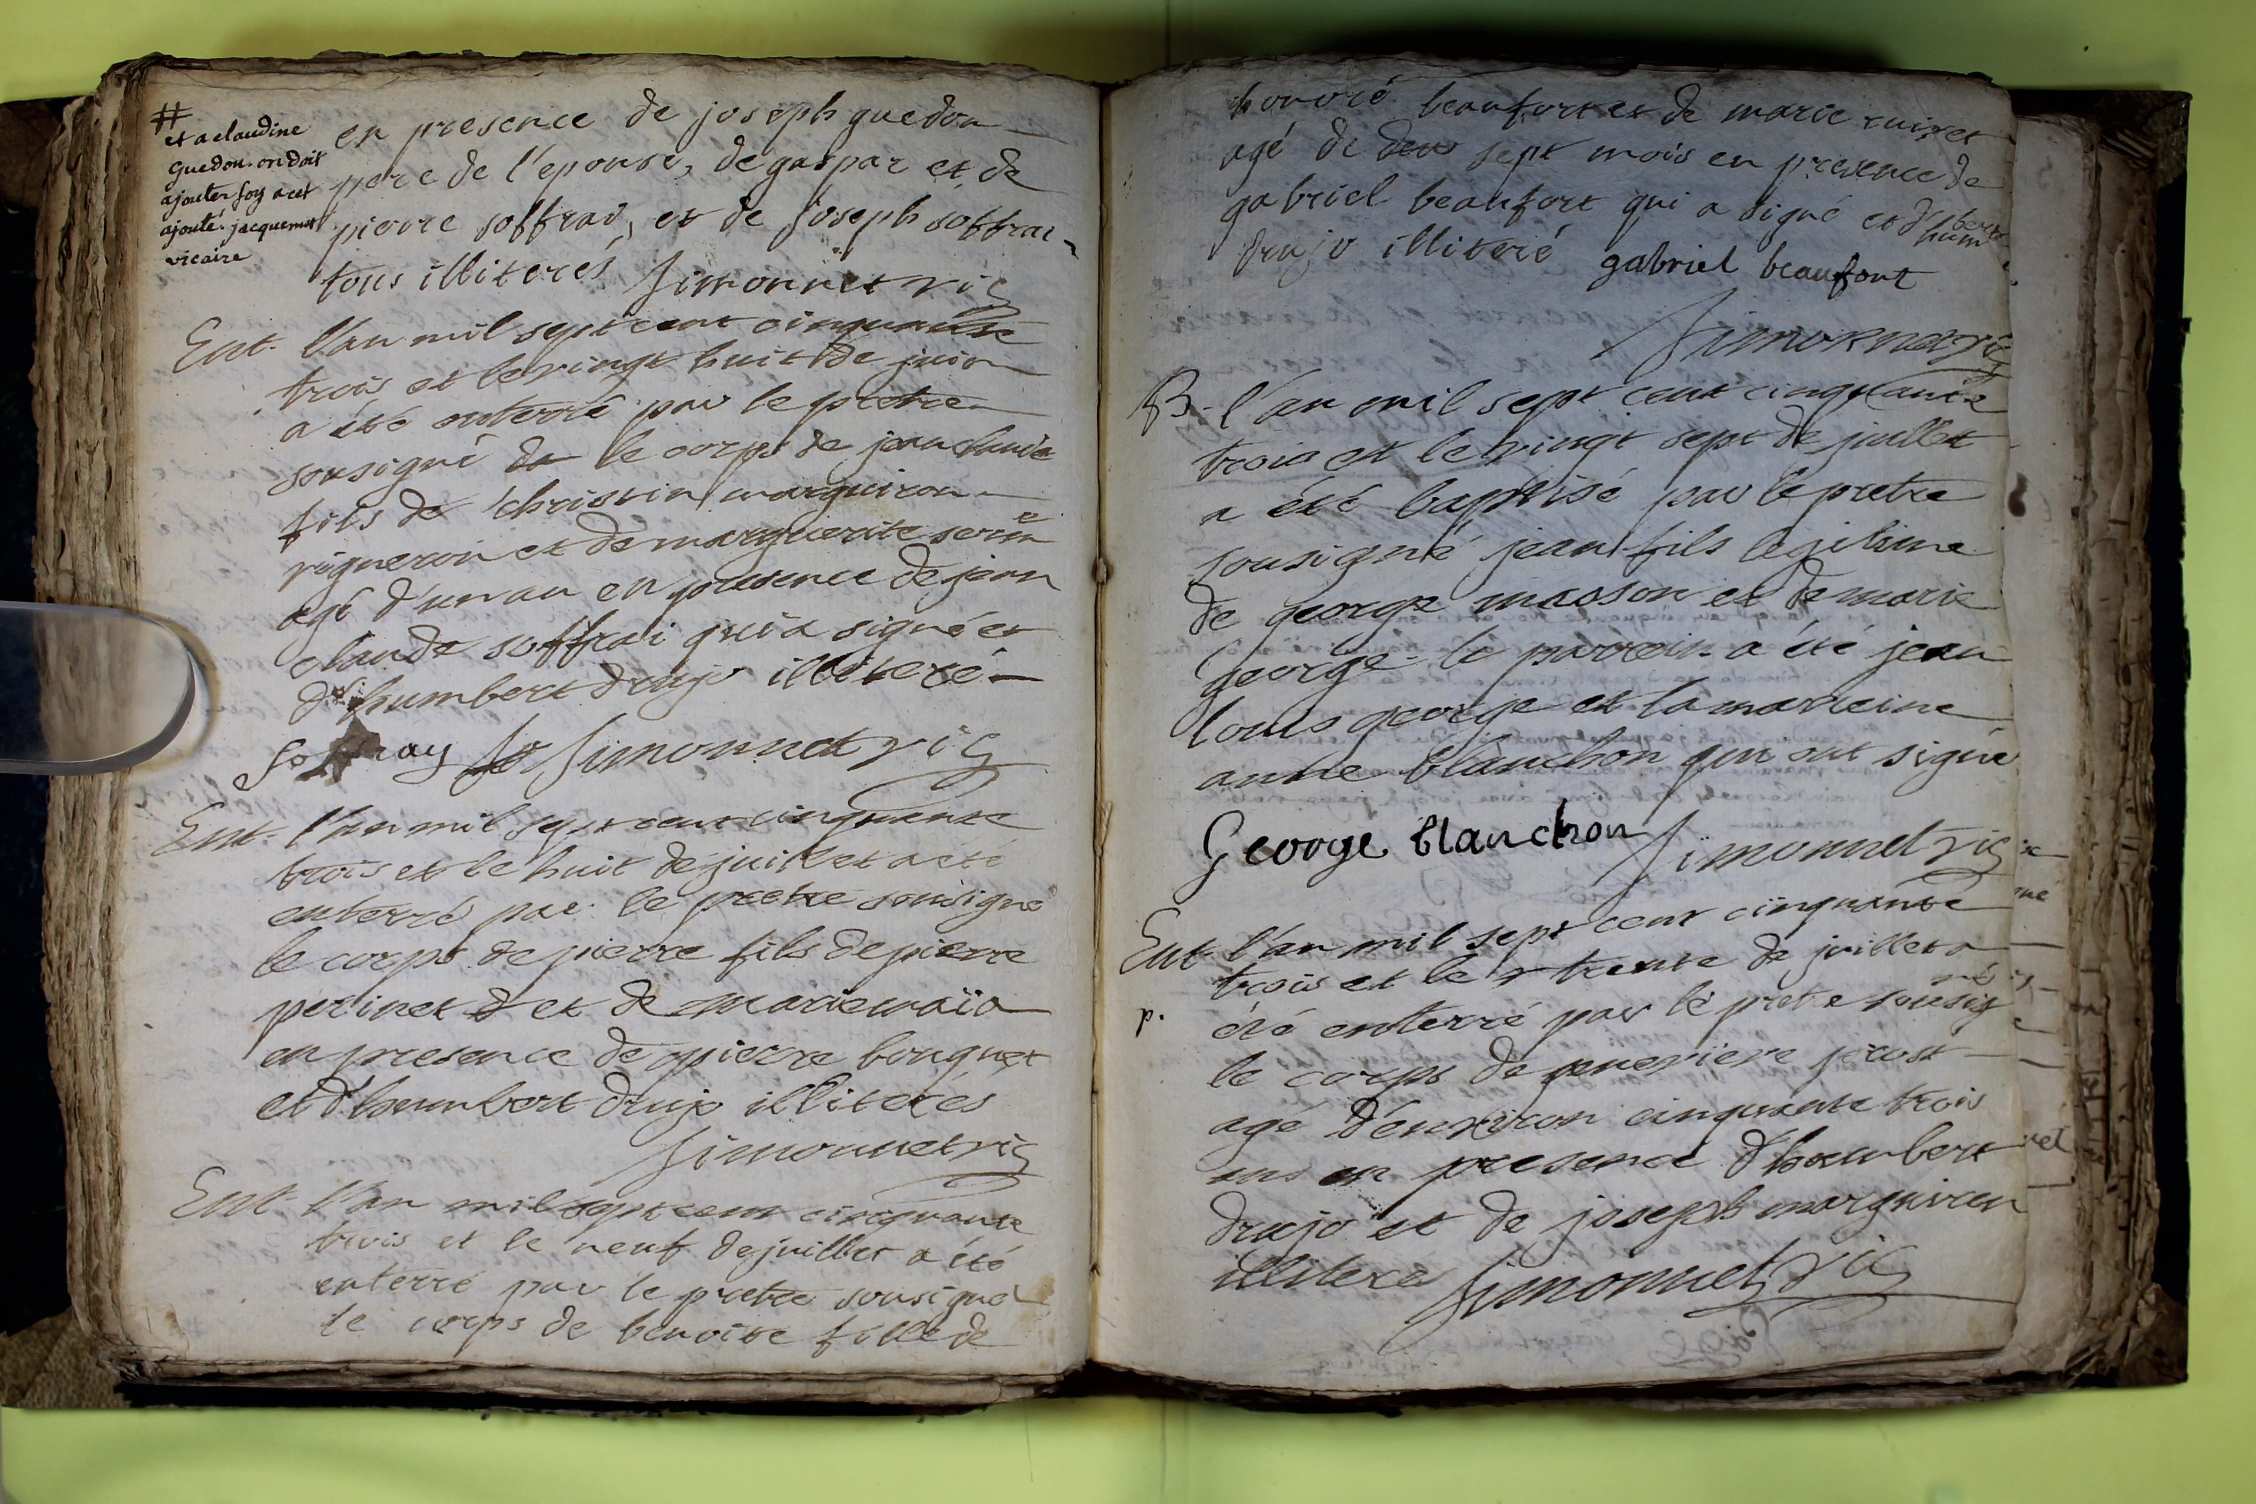 #
et a claudine
Guedou. on doit
ajouter foy a cet
ajouté. jacquemet
vicaire
en presence de joseph guedou
pere de l'epouse, de gaspar et de
pierre soffrai, et de joseph soffrai
tous illiterés Simonnet vic
Ent. l'an mil sept cent cinquante
trois et le vingt huit de juin
a été enterré par le pretre
sousigné le corps de jean claude
fils de christin marguiron
vigneron et de marguerite
agé d'un an en presence de jean
claude soffrai qui a signé et
d'humbert drujo illiteré
Soffray Simonnet vic
Ent. l'an mil sept cent cinquante
trois et le huit de juillet a été
enterré par le pretre sousigné
le corps de pierre fils de pierre
perinet et de marie
en presence de pierre bouquet
et d'humbert drujo illiterés
Simonnet vic
Ent. l'an mil sept cent cinquante
trois et le neuf de juillet a été
enterré par le pretre sousigné
le corps de benoite fille de
honoré beaufort et de marie
agé de sept mois en presence de
gabriel beaufort qui a signé et d'humbert
drujo illiteré gabriel beaufort
Simonnet vic
B. l'an mil sept cent cinquante
trois et le vingt sept de juillet
a été baptisé par le pretre
sousigné jean fils legitime
de george masson et de marie
george le parrein a été jean
louis george et la marreine
anne blanchon qui ont signé
George blanchon Simonnet vic
Ent. l'an mil sept cent cinquante
trois et le trente de juillet a
p. été enterré par le pretre sousigné
le corps de
agé d'environ cinquante trois
ans en presence d'humbert
drujo et de joseph marguiron
illiteré Simonnet vic